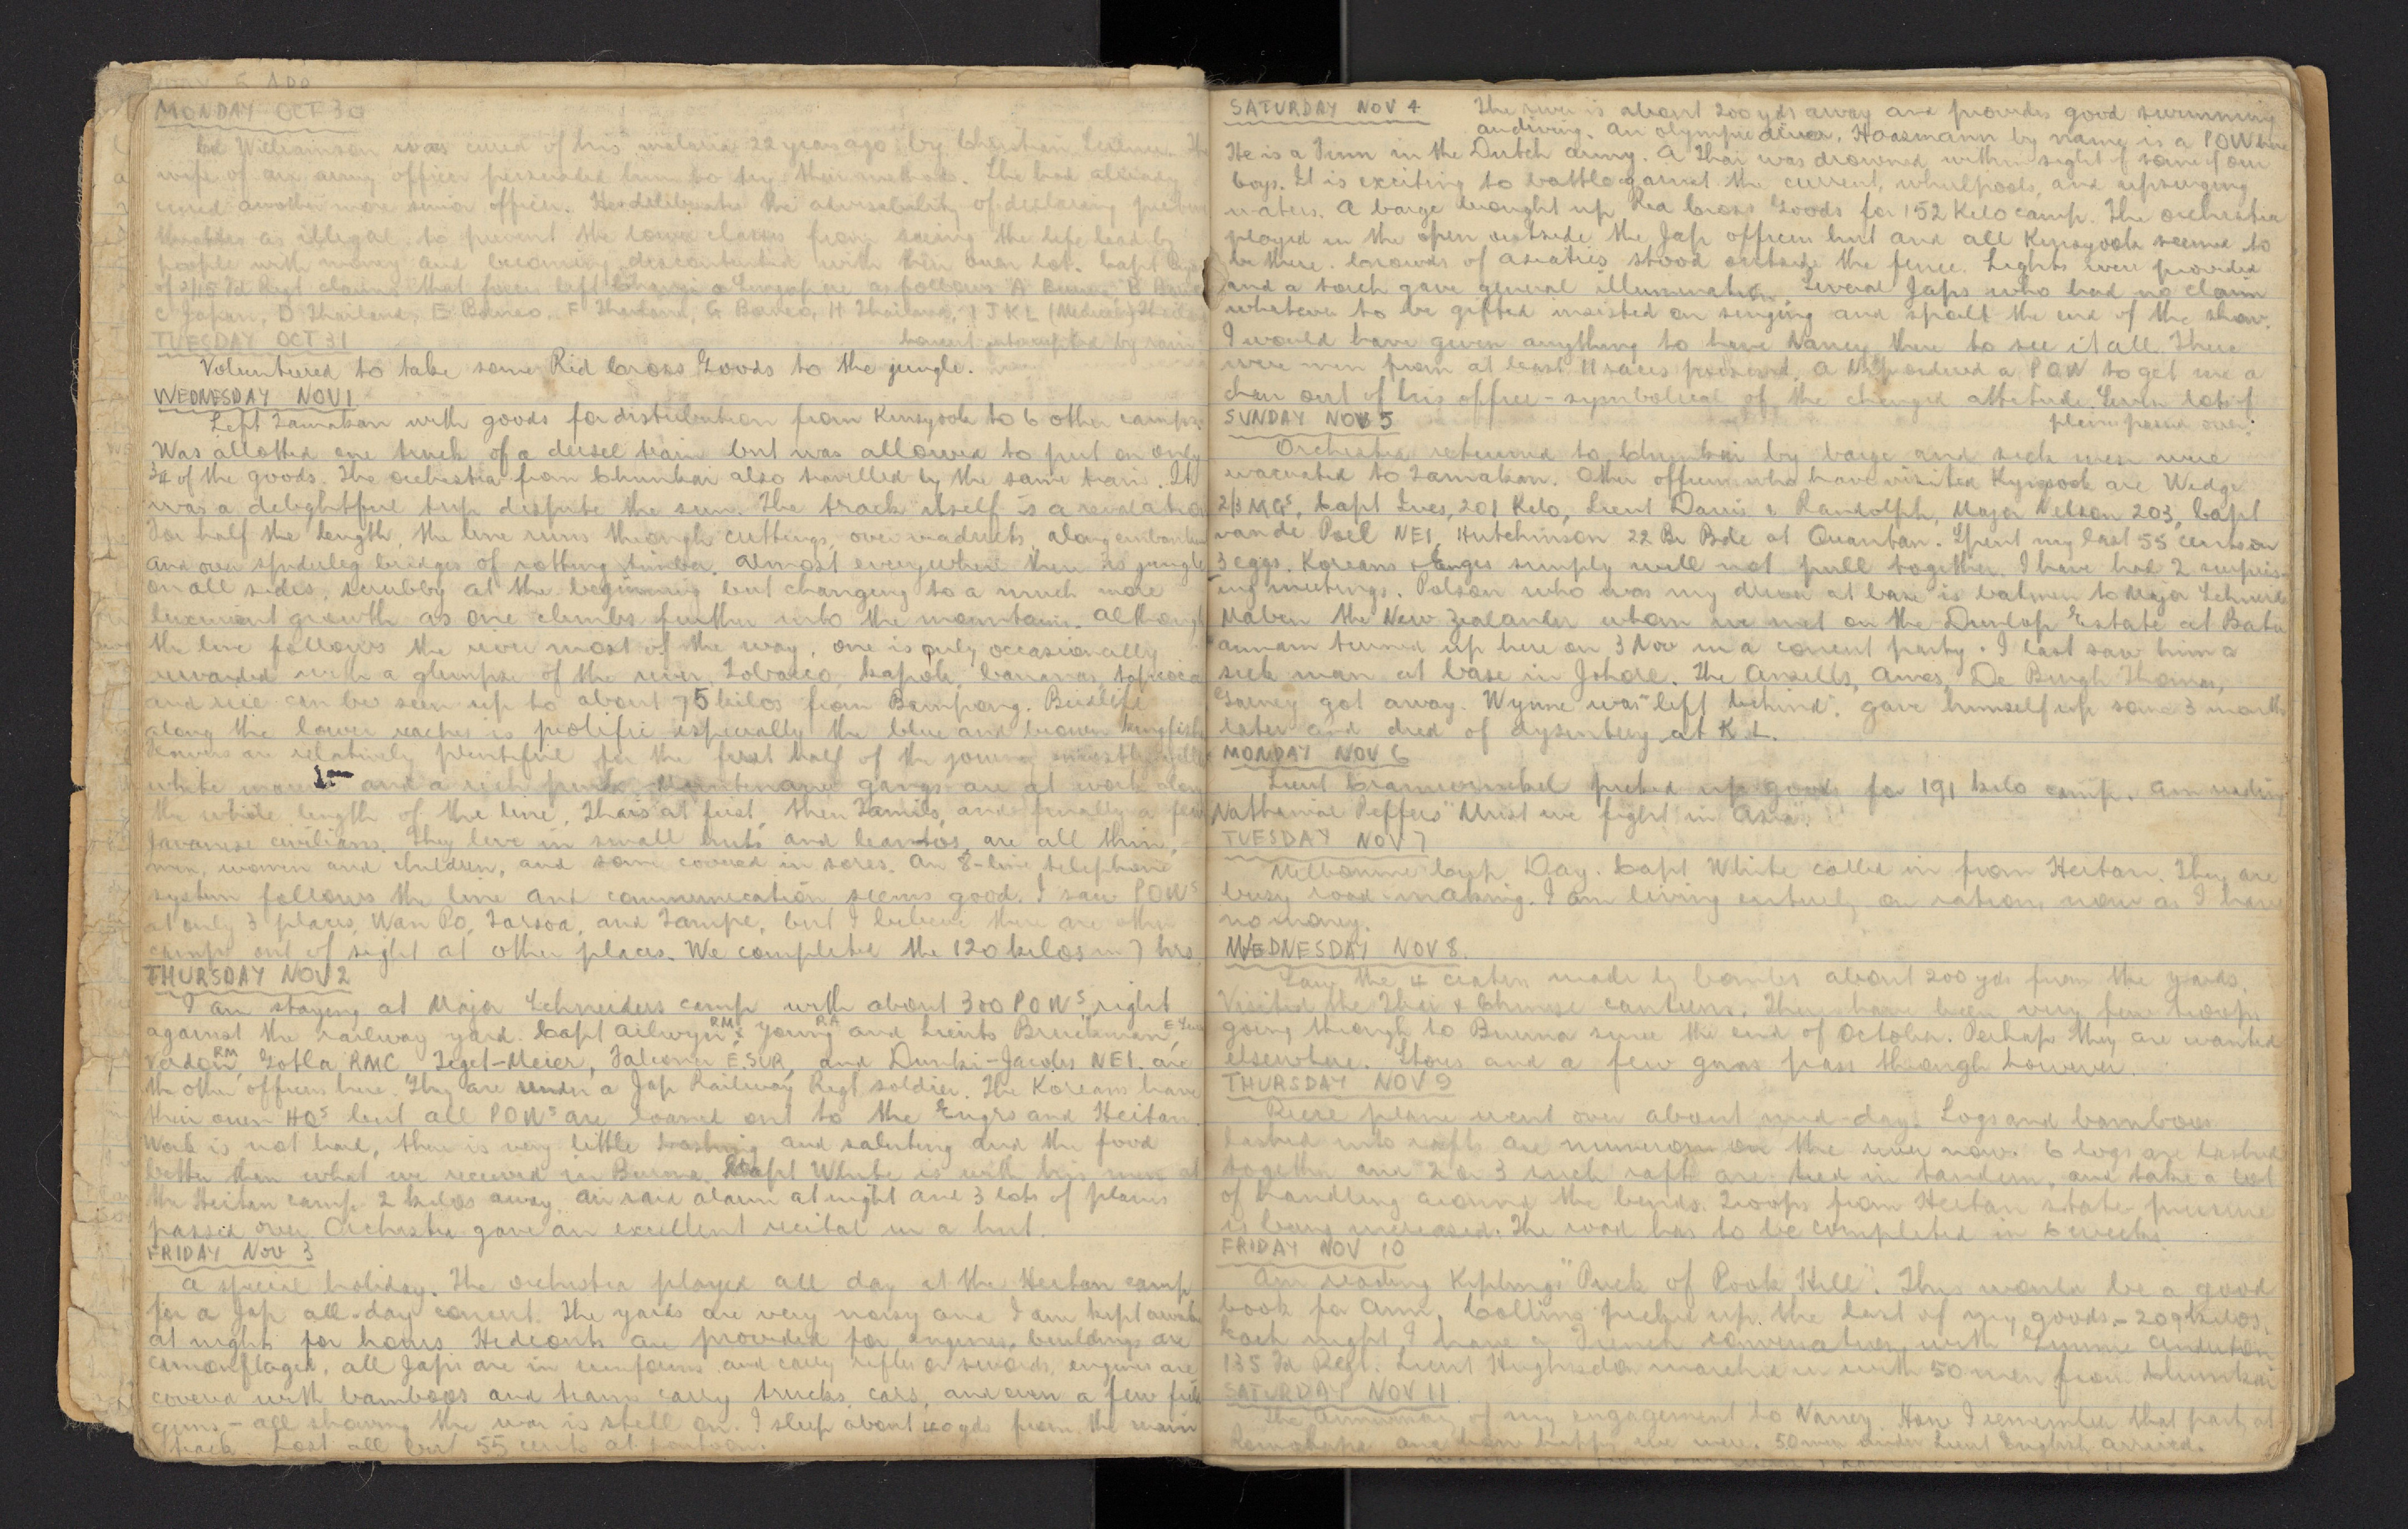 MONDAY OCT 30
Williamson was cured of his malaria 22 years ago by Christian Science. The
wife of an army officer persuaded him to try their methods. She had already
cured another more senior officer. He deliberates the advisability of declaring
as illegal, to prevent the lower classes from seeing the life lead by
people with money and becoming discontented with their own lot. Capt
of 2/15 Fd Regt claims that forces left Changi Singapore as follows A Burma, B Borneo
C Japan, D Thailand, E Borneo, F Thailand, G Borneo, H Thailand, I J K L (Medical) Thailand
TUESDAY OCT 31
Concert interrupted by rain
Volunteered to take some Red Cross Goods to the jungle.
WEDNESDAY NOV 1
Left Tamakan with goods for distribution from Kinsyook to 6 other camps.
Was allotted one truck of a diesel train but was allowed to put on only
3/4 of the goods. The orchestra from Chunkai also travelled by the same train. It
was a delightful trip dispite the sun. The track itself is a revelation
For half the length, the line runs through cuttings, over viaducts, along
and over spiderleg bridges of rotting timber. Almost everywhere there is jungle
on all sides, scrubby at the beginning but changing to a much more
luxuriant growth as one climbs further into the mountains. Although
the line follows the river most of the way, one is only occasionally
rewarded with a glimpse of the river. Tobacco, kapok, bananas, tapioca
and rice can be seen up to about 75 kilos from Bampong. Birdlife
along the lower reaches is prolific especially the blue and brown kingfisher
Flowers are relatively plentiful for the first half of the journey
white and a rich pink. Maintenance gangs are at work along
the whole length of the line, Thais at first, then Tamils, and finally a few
Javanese civilians. They live in small huts and leantos, are all thin,
men, women and children, and some covered in sores. An 8-line telephone
system follows the line and communication seems good. I saw POWs
at only 3 places, Wan Po, Tarsoa, and Tampe, but I believe there are other
camps out of sight at other places. We completed the 120 kilos in 7 hrs.
THURSDAY NOV 2
I am staying at Major Schneiders camp with about 300 POWs right
against the railway yard. Capt Ailwyn RM, Young RA and Lieuts Bruckman
Verdon RM, Gotla RMC Tegel-Meier, Falconer E.SUR, and Dunki-Jacobs NEI. are
the other officers here. They are under a Jap Railway Regt soldier. The Koreans have
their own HQs but all POWs are loaned out to the Engrs and Heitan.
Work is not hard, there is very little bashing and saluting and the food
better than what we received in Burma. Capt White is with his men at
the Heitan camp 2 kilos away. Air raid alarm at night and 3 lots of planes
passed over. Orchestra gave an excellent recital in a hut.
FRIDAY NOV 3
A special holiday. The orchestra played all day at the Heitan camp
for a Jap all-day concert. The yards are very noisy and I am kept awake
at night for hours. Hideouts are provided for engines, buildings are
camouflaged, all Japs are in uniform and carry rifles or swords, engines are
covered with bamboos and trains carry trucks, cars, and even a few field
guns - all showing the war is still on. I sleep about 40 yds from the main
track. Lost all but 55 cents at pontoon.
SATURDAY NOV 4 The river is about 200 yds away and provides good swimming
and diving. An olympic diver, Haasmann by name is a POW here
He is a Finn in the Dutch army. A Thai was drowned within sight of some of our
boys. It is exciting to battle against the current, whirlpools, and upsurging
waters. A barge brought up Red Cross Goods for 152 Kilo camp. The orchestra
played in the open outside the Jap officers hut and all Kinsyook seemed to
be there. Crowds of asiatics stood outside the fence. Lights were provided
and a torch gave general illumination. Several Japs who had no claim
whatever to be gifted insisted on singing and spoilt the end of the show.
I would have given anything to have Nancy there to see it all. There
were men from at least 11 races present. A Nip ordered a POW to get me a
chair out of his office - symbolical of the changed attitude. Seven lots of
planes passed over.
SUNDAY NOV 5
Orchestra returned to Chunkai by barge and sick men were
evacuated to Tamakan. Other officers who have visited Kinsyook are Wedge
2/3 MGs, Capt Ives, 201 Kilo, Lieut Davis & Randolph, Major Nelson 203, Capt
van de Poel NEI, Hutchinson 22 Br Bde at Quantan. Spent my last 55 cents on
3 eggs. Koreans & Engrs simply will not pull together. I have had 2 surpris-
ing meetings. Polson who was my driver at base is batman to Major Schneider
Maben the New Zealander whom we met on the Dunlop Estate at Batu
annam turned up here on 3 Nov in a concert party. I last saw him a
sick man at base in Johore. The Ansells, Ames, De Burgh Thomas,
got away. Wynne was "left behind", gave himself up some 3 months
later and died of dysentery at K L.
MONDAY NOV 6
Lieut picked up goods for 191 kilo camp. Am reading
Nathanial Peffers "Must we fight in Asia".
TUESDAY NOV 7
Melbourne Cup Day. Capt White called in from Heitan. They are
busy road-making. I am living entirely on rations now as I have
no money.
WEDNESDAY NOV 8.
Saw the 4 craters made by bombs about 200 yds from the yards.
Visited the Thai & Chinese canteens. There have been very few troops
going through to Burma since the end of October. Perhaps they are wanted
elsewhere. Stores and a few guns pass through however.
THURSDAY NOV 9
Recce plane went over about mid-day. Logs and bamboos
lashed into rafts are numerous on the river now. 6 logs are lashed
together and 2 or 3 such rafts are tied in tandem, and take a lot
of handling around the bends. Troops from Heitan state pressure
is being increased. The road has to be completed in 6 weeks.
FRIDAY NOV 10
Am reading Kiplings "Puck of Pook Hill". This would be a good
book for Ann. Collins picked up the last of my goods - 209 kilos.
Each night I have a French conversation with Gunner Anderton
135 Fd Regt. Lieut Hughsdon marched in with 50 men from Chunkai
SATURDAY NOV 11
The Anniversary of my engagement to Nancy. How I remember that party at
and how happy we were. 50 men under Lieut English arrived.